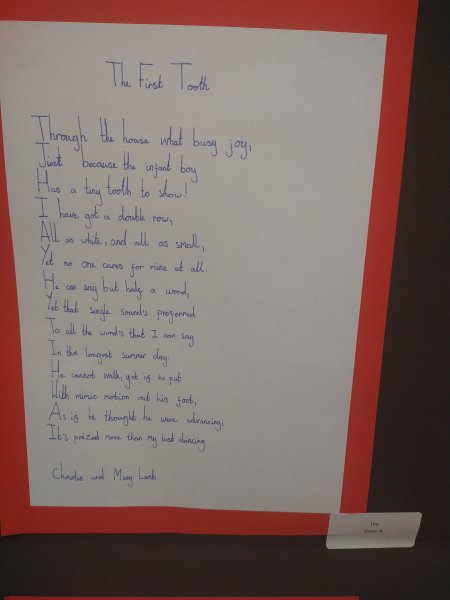 The First Tooth
Through the house what busy joy,
Just because the infant boy
Has a tiny tooth to show!
I have got a double row,
All as white, and all as small,
Yet no one cares for mine at all.
He can say but half a word,
Yet that single sound's preferred
To all the word's that I can say
In the longest summer day.
He cannot walk, yet if he put
With mimic motion out his foot,
As if he thought he were advancing,
It's prized more than my best dancing
Charles and Mary Lamb
Ivy
Year 4